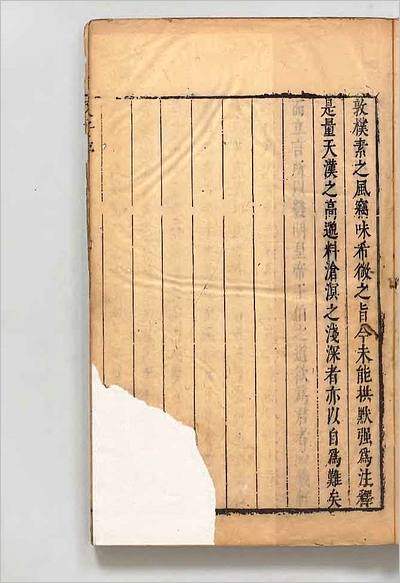 敦樸素之風竊味希微之旨今未能拱默强爲注釋
是量天漢之高邈料滄溟之淺深者亦以自爲難矣
而立言所以發明皇帝王伯之道